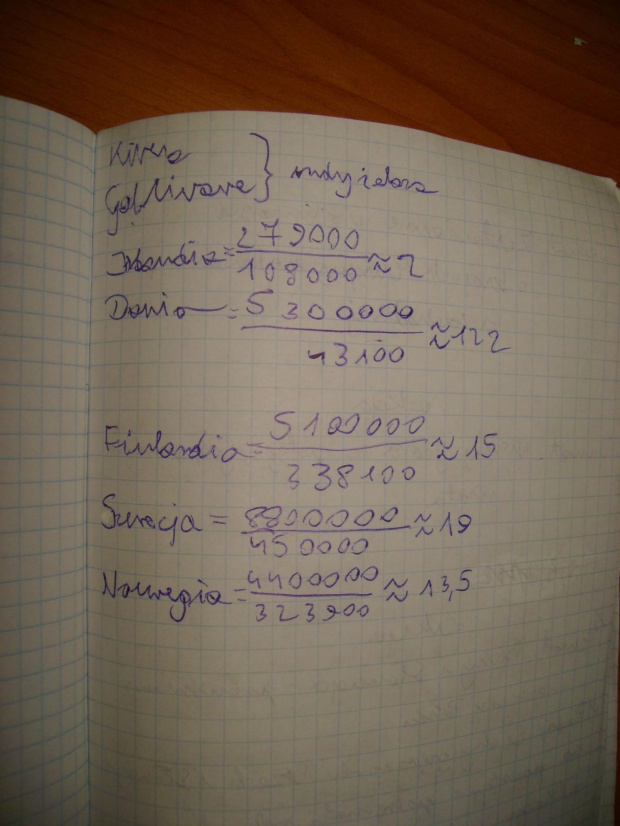 Kiruna
Gällivare } rudy żelaza
Islandia = 279000 / 108000 ≈ 2
Dania = 5300000 / 43100 ≈ 122
Finlandia = 5100000 / 338100 ≈ 15
Szwecja = 8800000 / 450000 ≈ 19
Norwegia = 4400000 / 323900 ≈ 13,5